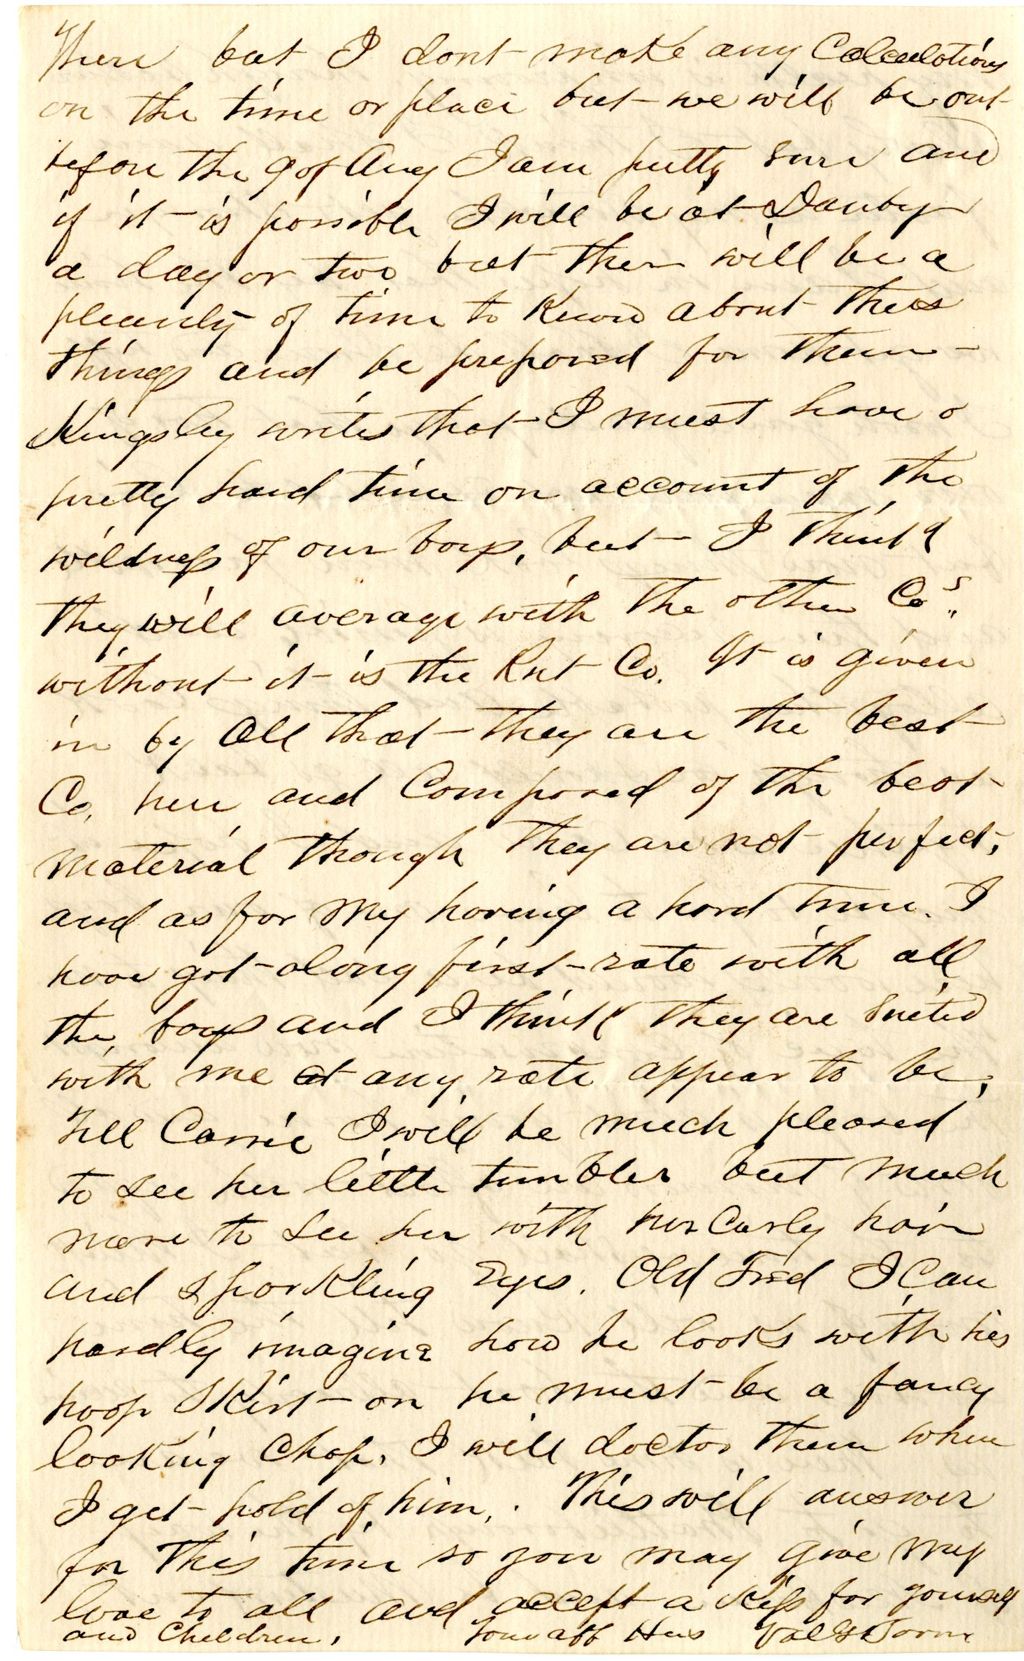 there but I dont make any Calculations
on the time or place but we will be out
before the 9 of Aug I am pretty sure and
if it is possible I will be at Danby
a day or two but there will be a
pleanty of time to know about thees
things and be prepared for them
Kingsley writes that I must have a
pretty hard time on account of the
wildness of our boys, but I think
they will average with the other Cos.
without it is the Rut Co. It is given
in by All that they are the best
Co. here and Composed of the best
material though they are not perfect,
and as for my having a hard time. I
have got along first-rate with all
the boys and I think they are suited
with me at any rate appear to be.
Tell Carrie I will be much pleased
to see her little tumbler but much
more to see her with her Curly hair
and sparkling Eyes. Old Fred I Can
hardly imagine how he looks with his
hoop skirt on he must be a fancy
looking Chap. I will doctor them when
I get hold of him. This will answer
for this time so you may give my
love to all and accept a Kiss for yourself
and Children. Your aff Hus